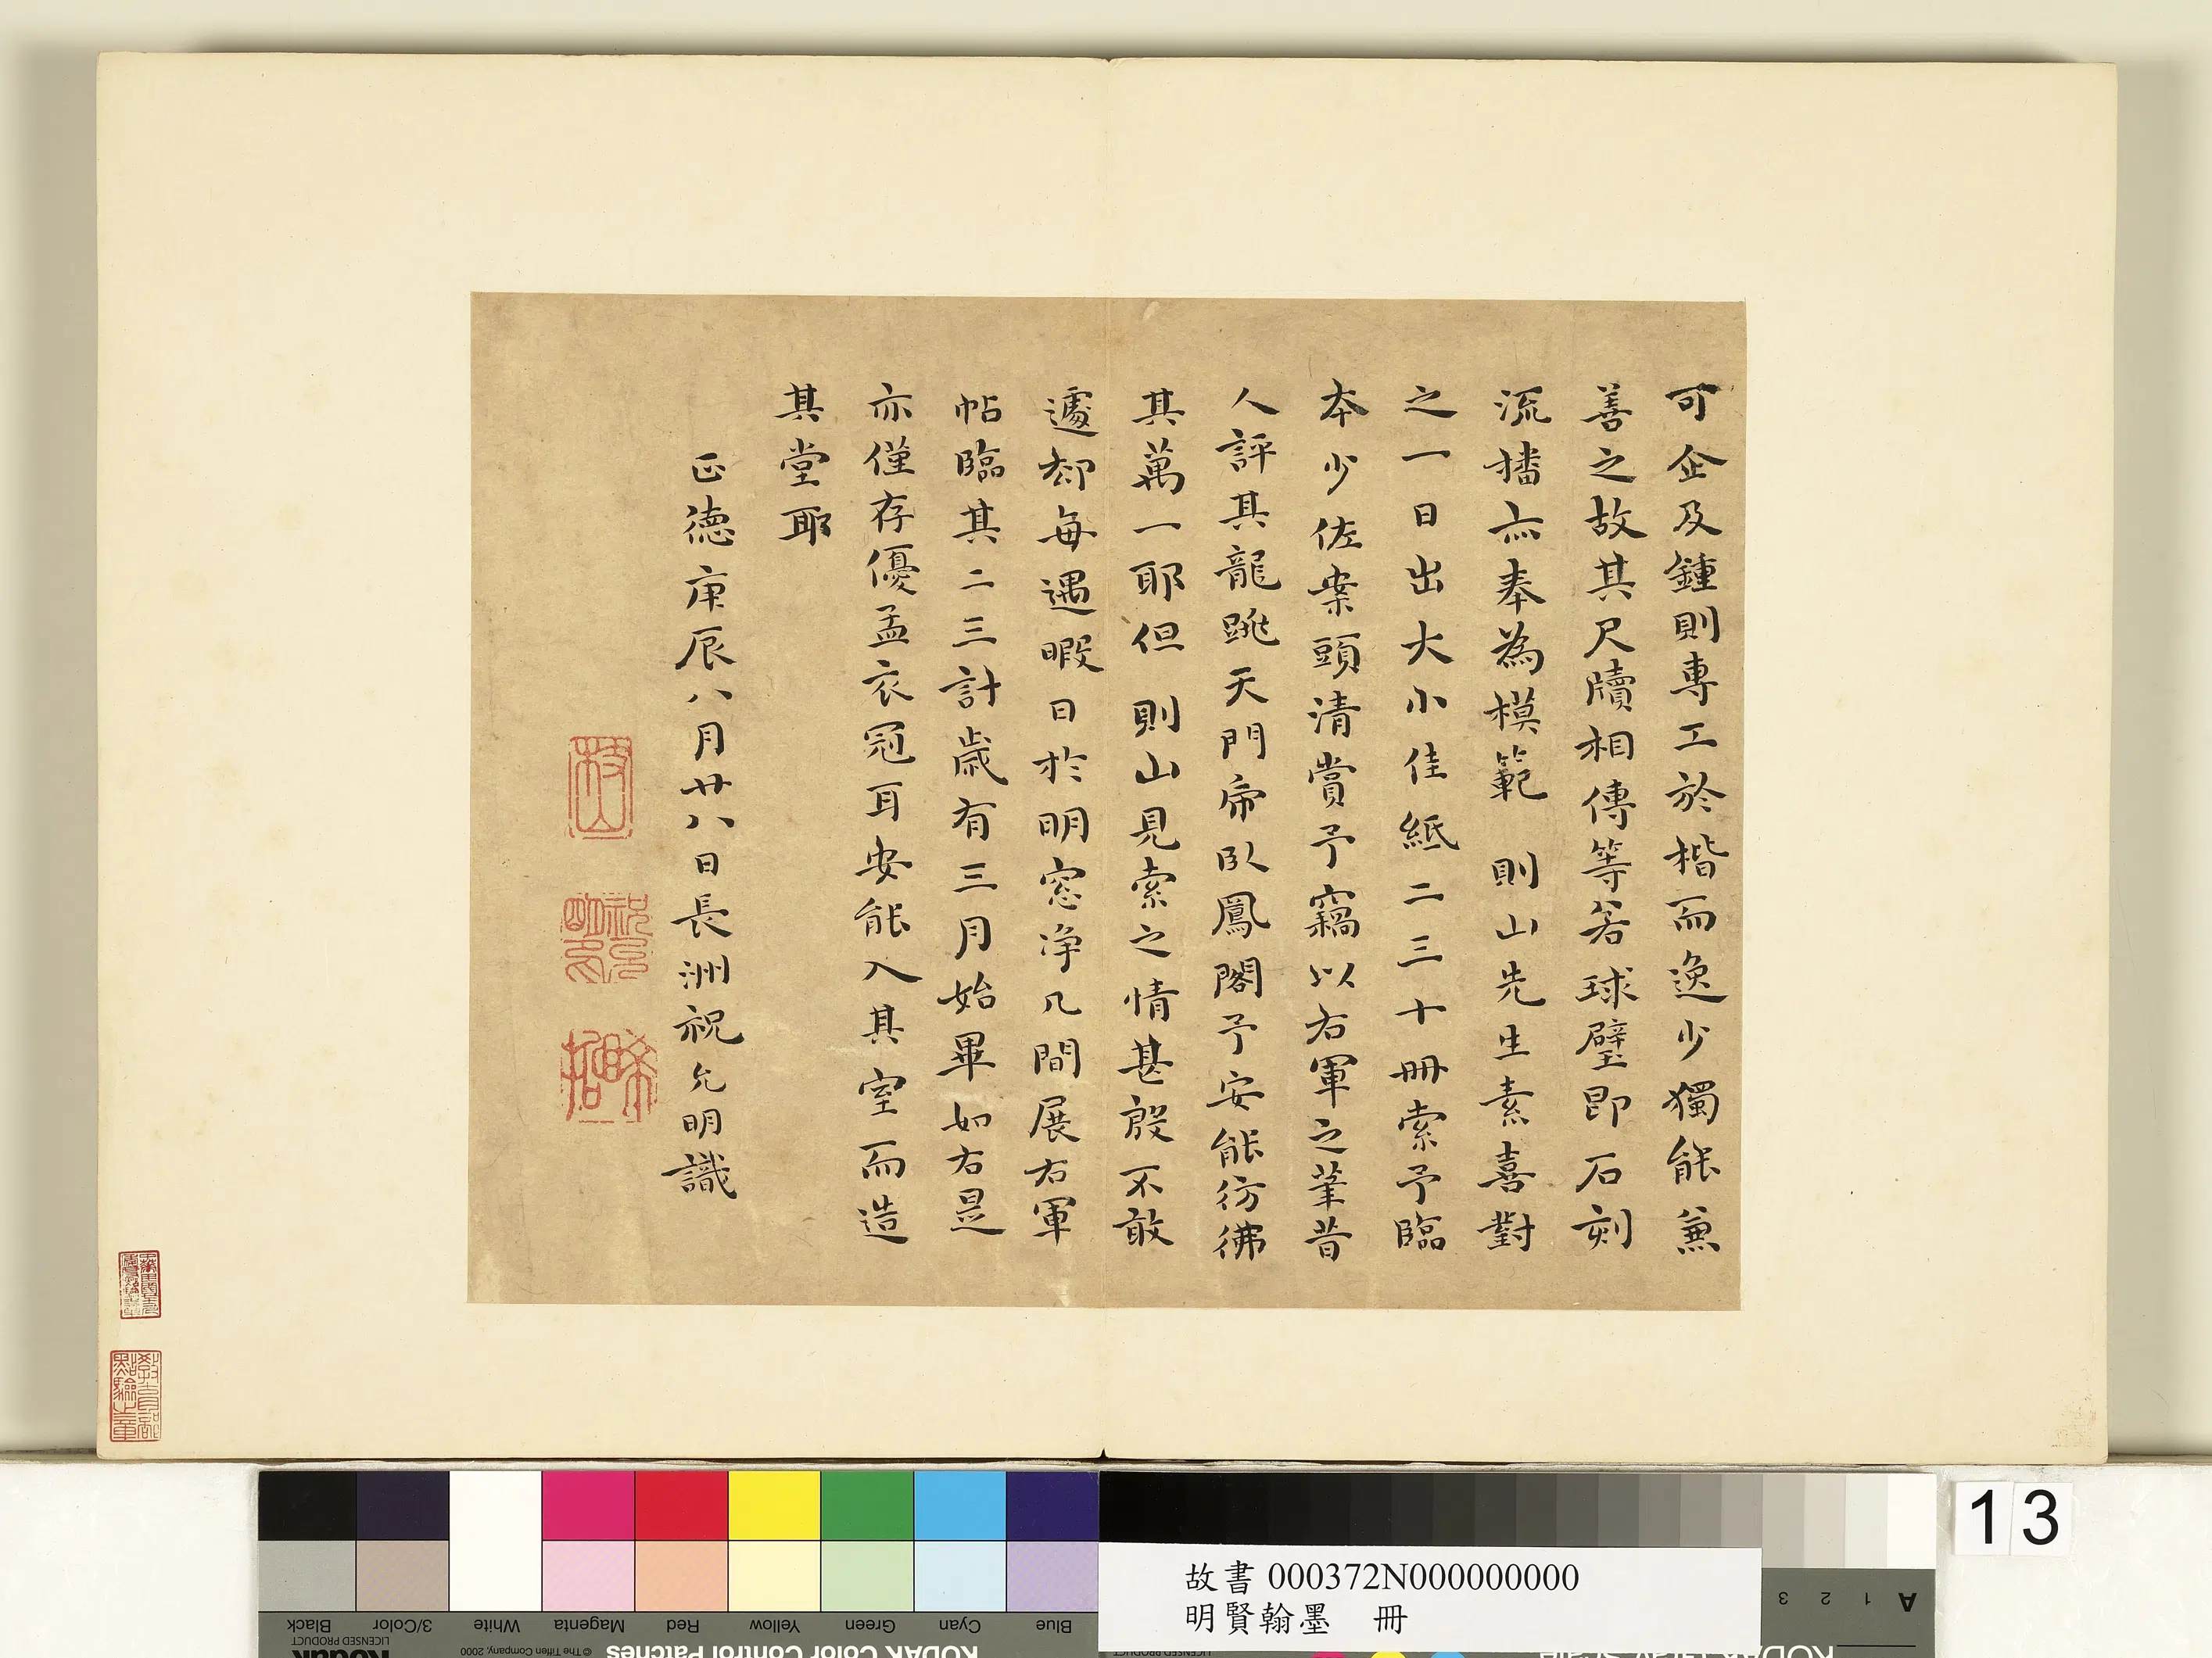 可企及鍾則專工於楷而逸少獨能兼
善之故其尺牘相傳等若球璧即石刻
流播亦奉為模範則山先生素喜對
之一日出大小佳紙二三十冊索予臨
本少佐案頭清賞予竊以右軍之筆昔
人評其龍跳天門帝臥鳳閣予安能彷彿
其萬一耶但則山見索之情甚殷不敢
遽却每遇暇日於明窓净几間展右軍
帖臨其二三計歲有三月始畢如右是
亦僅存優孟衣冠耳安能入其室而造
其堂耶
正德庚辰八月廿八日長洲祝允明識
枝山
祝允明印
晞哲
教育部點驗之章
13
故書 000372N000000000
明賢翰墨 冊
Black
3/Color
White
Magenta
Red
Yellow
Green
Cyan
Blue
LICENSED PRODUCT
© The Tiffen Company, 2000
Kodak
KODAK Color Control Patches
A 1 2 3